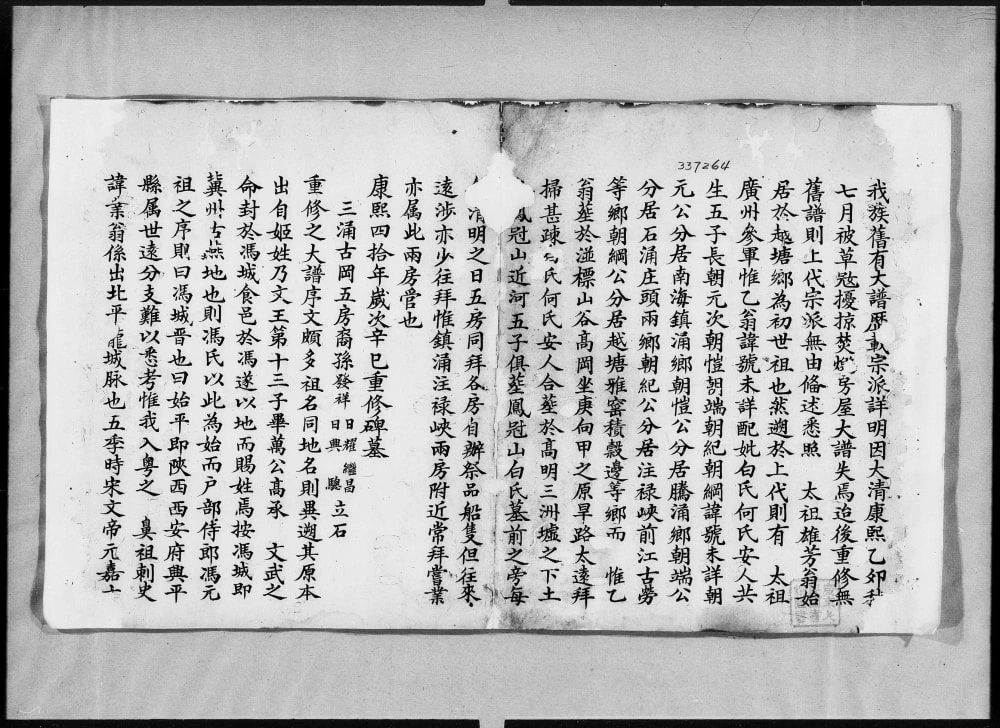 337264
我族舊有大譜歷載宗派詳明因大清康熙乙卯秋
七月被草寇擾掠焚燬房屋大譜失焉迨後重修無
舊譜則上代宗派無由偹述悉照　太祖雄芳翁始
居於越塘鄉為初世祖也然遡於上代則有　太祖
廣州參軍惟乙翁諱號未詳配妣白氏何氏安人共
生五子長朝元次朝愷朝端朝紀朝綱諱號未詳朝
元公分居南海鎮涌鄉朝愷公分居騰涌鄉朝端公
分居石涌庄頭兩鄉朝紀公分居注禄峽前江古勞
等鄉朝綱公分居越塘雅窰積穀邊等鄉而　惟乙
翁塟於溢標山谷高岡坐庚向甲之原旱路太遠拜
掃甚踈白氏何氏安人合塟於高明三洲墟之下土
鳳冠山近河五子俱塟鳳冠山白氏墓前之旁每
清明之日五房同拜各房自辦祭品船隻但往來
遠涉亦少往拜惟鎮涌注禄峽兩房附近常拜嘗業
亦属此兩房管也
康熙四拾年嵗次辛巳重修碑墓
三涌古岡五房裔孫發祥 日耀 日興 繼昌 聰 立石
重修之大譜序文頗多祖名同地名則異遡其原本
出自姬姓乃文王第十三子畢萬公高承　文武之
命封於馮城食邑於馮遂以地而賜姓焉按馮城即
冀州古燕地也則馮氏以此為始而户部侍郎馮元
祖之序則曰馮城晋也曰始平即陝西西安府興平
縣属世遠分支難以悉考惟我入粤之　鼻祖刺史
諱業翁係出北平龍城脉也五季時宋文帝元嘉十